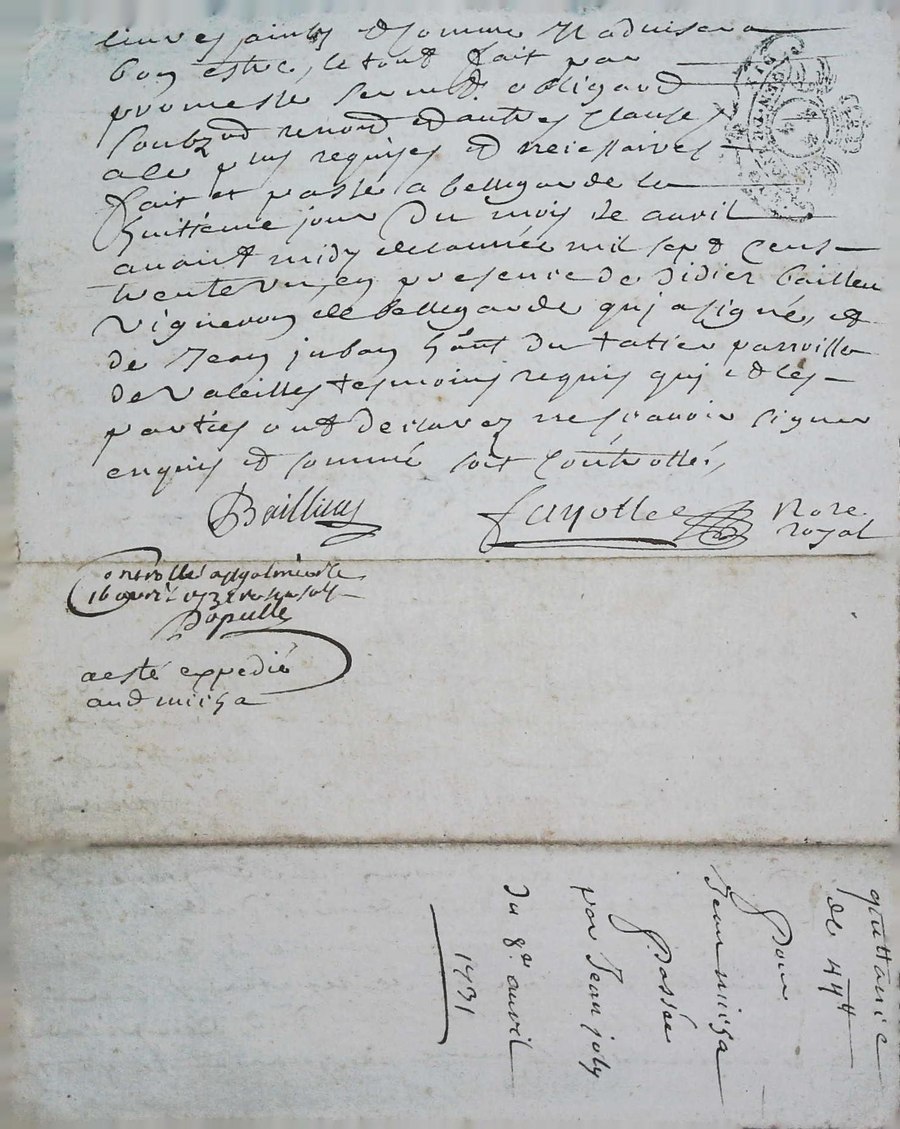 bon estre, le tout fait par
promesse serment obligaõn
soubz renon et autres clauses
a ce plus requises et necessaires
fait et passé a bellegarde le
huitieme jour du mois de avril
avant midy de lannée mil sept cens
trente un, en presence de didier bailleu
vigneron de bellegarde qui a signé, et
de Jean juban hãnt du parroisse
de valeilles tesmoins requis qui et les
parties ont declarez ne scavoir signer
enquis et sommé soit controllé,
Bailleu
fayolle No.re
royal
Controllé a st galmier le
16 avril 1731
Populle
a esté expedié
aud miiga
quittance
de 44tt
Pour
Jean miiga
Passée
par Jean joly
du 8e avril
1731